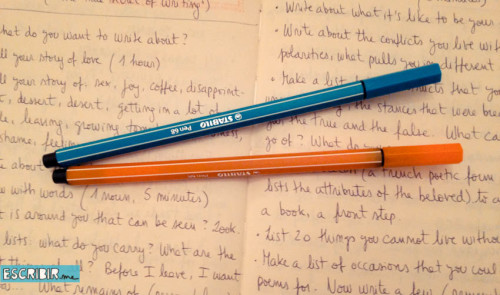 secret of writing")
hat do you want to write about?
ll your story of love (1 hour)
ll your story of: sex, joy, coffee, disappoint-
t, dessert, desert, getting in a lot of
le, leaving, growing
shame,
t about
w with words (1 noun, 5 minutes)
t is around you that can be seen? Look.
lists. what do you carry? What are the
Before I leave, I want
What remains of
• Write about what it's like to be your
• Write about the conflicts you live wit
polarities, what pulls you different
• Make a list that you
the stances that were
the true and the false. What ca
go of? What do
(a french poetic form
lists the attributes of the beloved) to a
a book, a front step
• List 20 things you cannot live withou
• Make a list of occasions that you coul
poems for. Now write a few
STABILO
Pen 68
ESCRIBIR.me